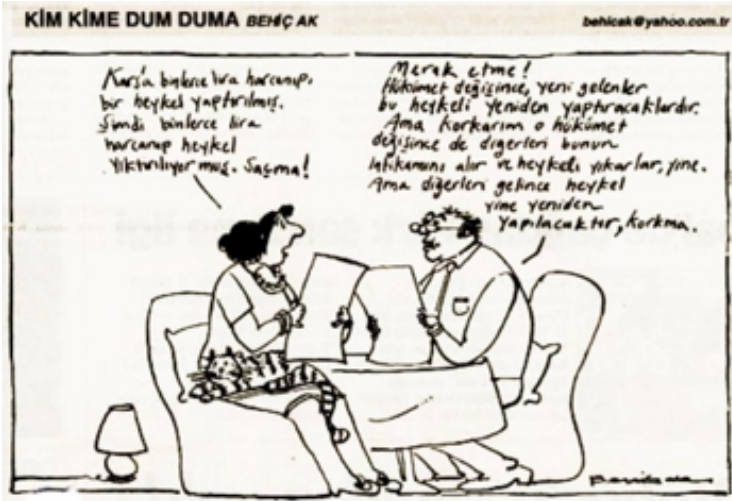 KİM KİME DUM DUMA BEHİÇ AK
behicak@yahoo.com.tr
Kars'a binlerce lira harcanıp,
bir heykel yaptırılmış.
Şimdi binlerce lira
harcanıp heykel
yıktırılıyormuş. Saçma!
Merak etme!
Hükümet değişince, yeni gelenler
bu heykeli yeniden yaptıracaklardır.
Ama korkarım o hükümet
değişince de diğerleri bunun
intikamını alır ve heykeli yıkarlar, yine.
Ama diğerleri gelince heykel
yine yeniden
yapılacaktır, korkma.